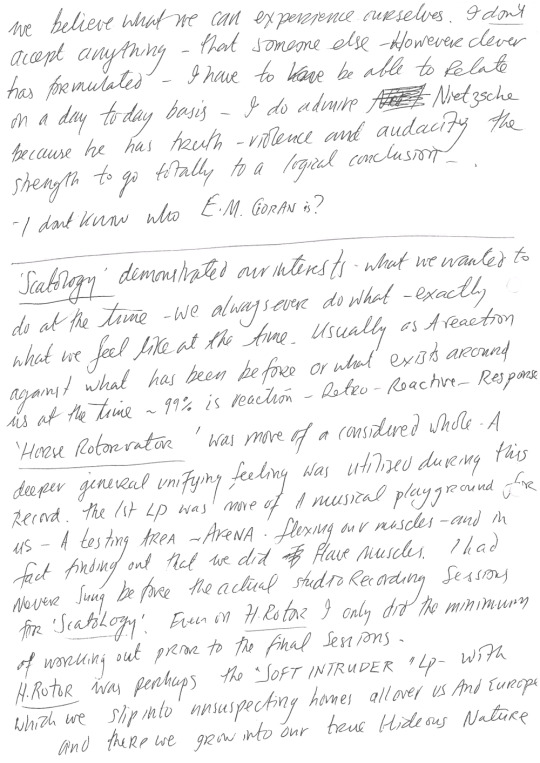 we believe what we can experience ourselves. I don't
accept anything - that someone else - However clever
has formulated - I have to be able to Relate
on a day to day basis - I do admire Nietzsche
because he has truth - violence and audacity the
strength to go totally to a logical conclusion - .
- I dont know who E.M. CORAN is?
'Scatology' demonstrated our interests - what we wanted to
do at the time - we always ever do what - exactly
what we feel like at the time. Usually as A reaction
against what has been before or what exists around
us at the time ~ 99% is reaction - Retro - Reactive - Response
'Horse Rotorvator' was more of a considered whole. A
deeper general unifying feeling was utilized during this
Record. The 1st LP was more of A musical playground for
us - A testing AREA - ARENA. flexing our muscles - and in
fact finding out that we did Have Muscles. I had
Never Sung before the actual studio Recording Sessions
for 'Scatology'. Even on H.Rotor I only did the minimum
of working out prior to the final Sessions.
H.ROTOR was perhaps the "SOFT INTRUDER" Lp - with
which we slip into unsuspecting homes all over US And Europe
and there we grow into our true Hideous Nature